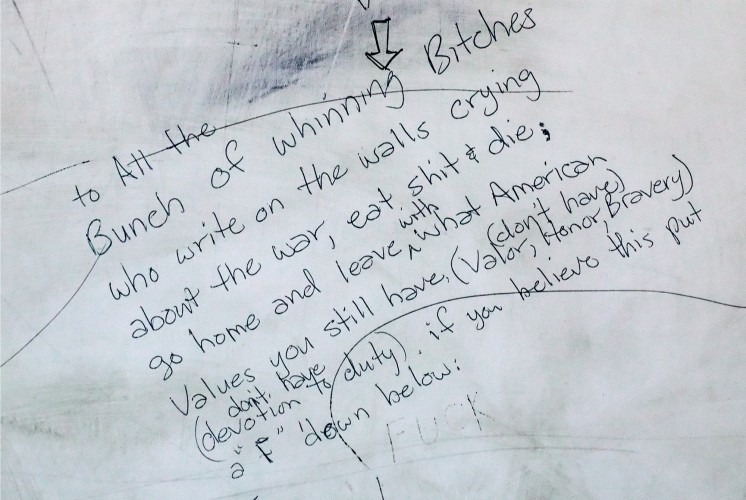 to All the
Bunch of whinning Bitches
who write on the walls crying
about the war, eat shit & die;
go home and leave with what American
Values you still have, (Valor, Honor, Bravery)
(don't have)
(devotion to duty). if you believe this put
don't have
a "F" down below:
FUCK